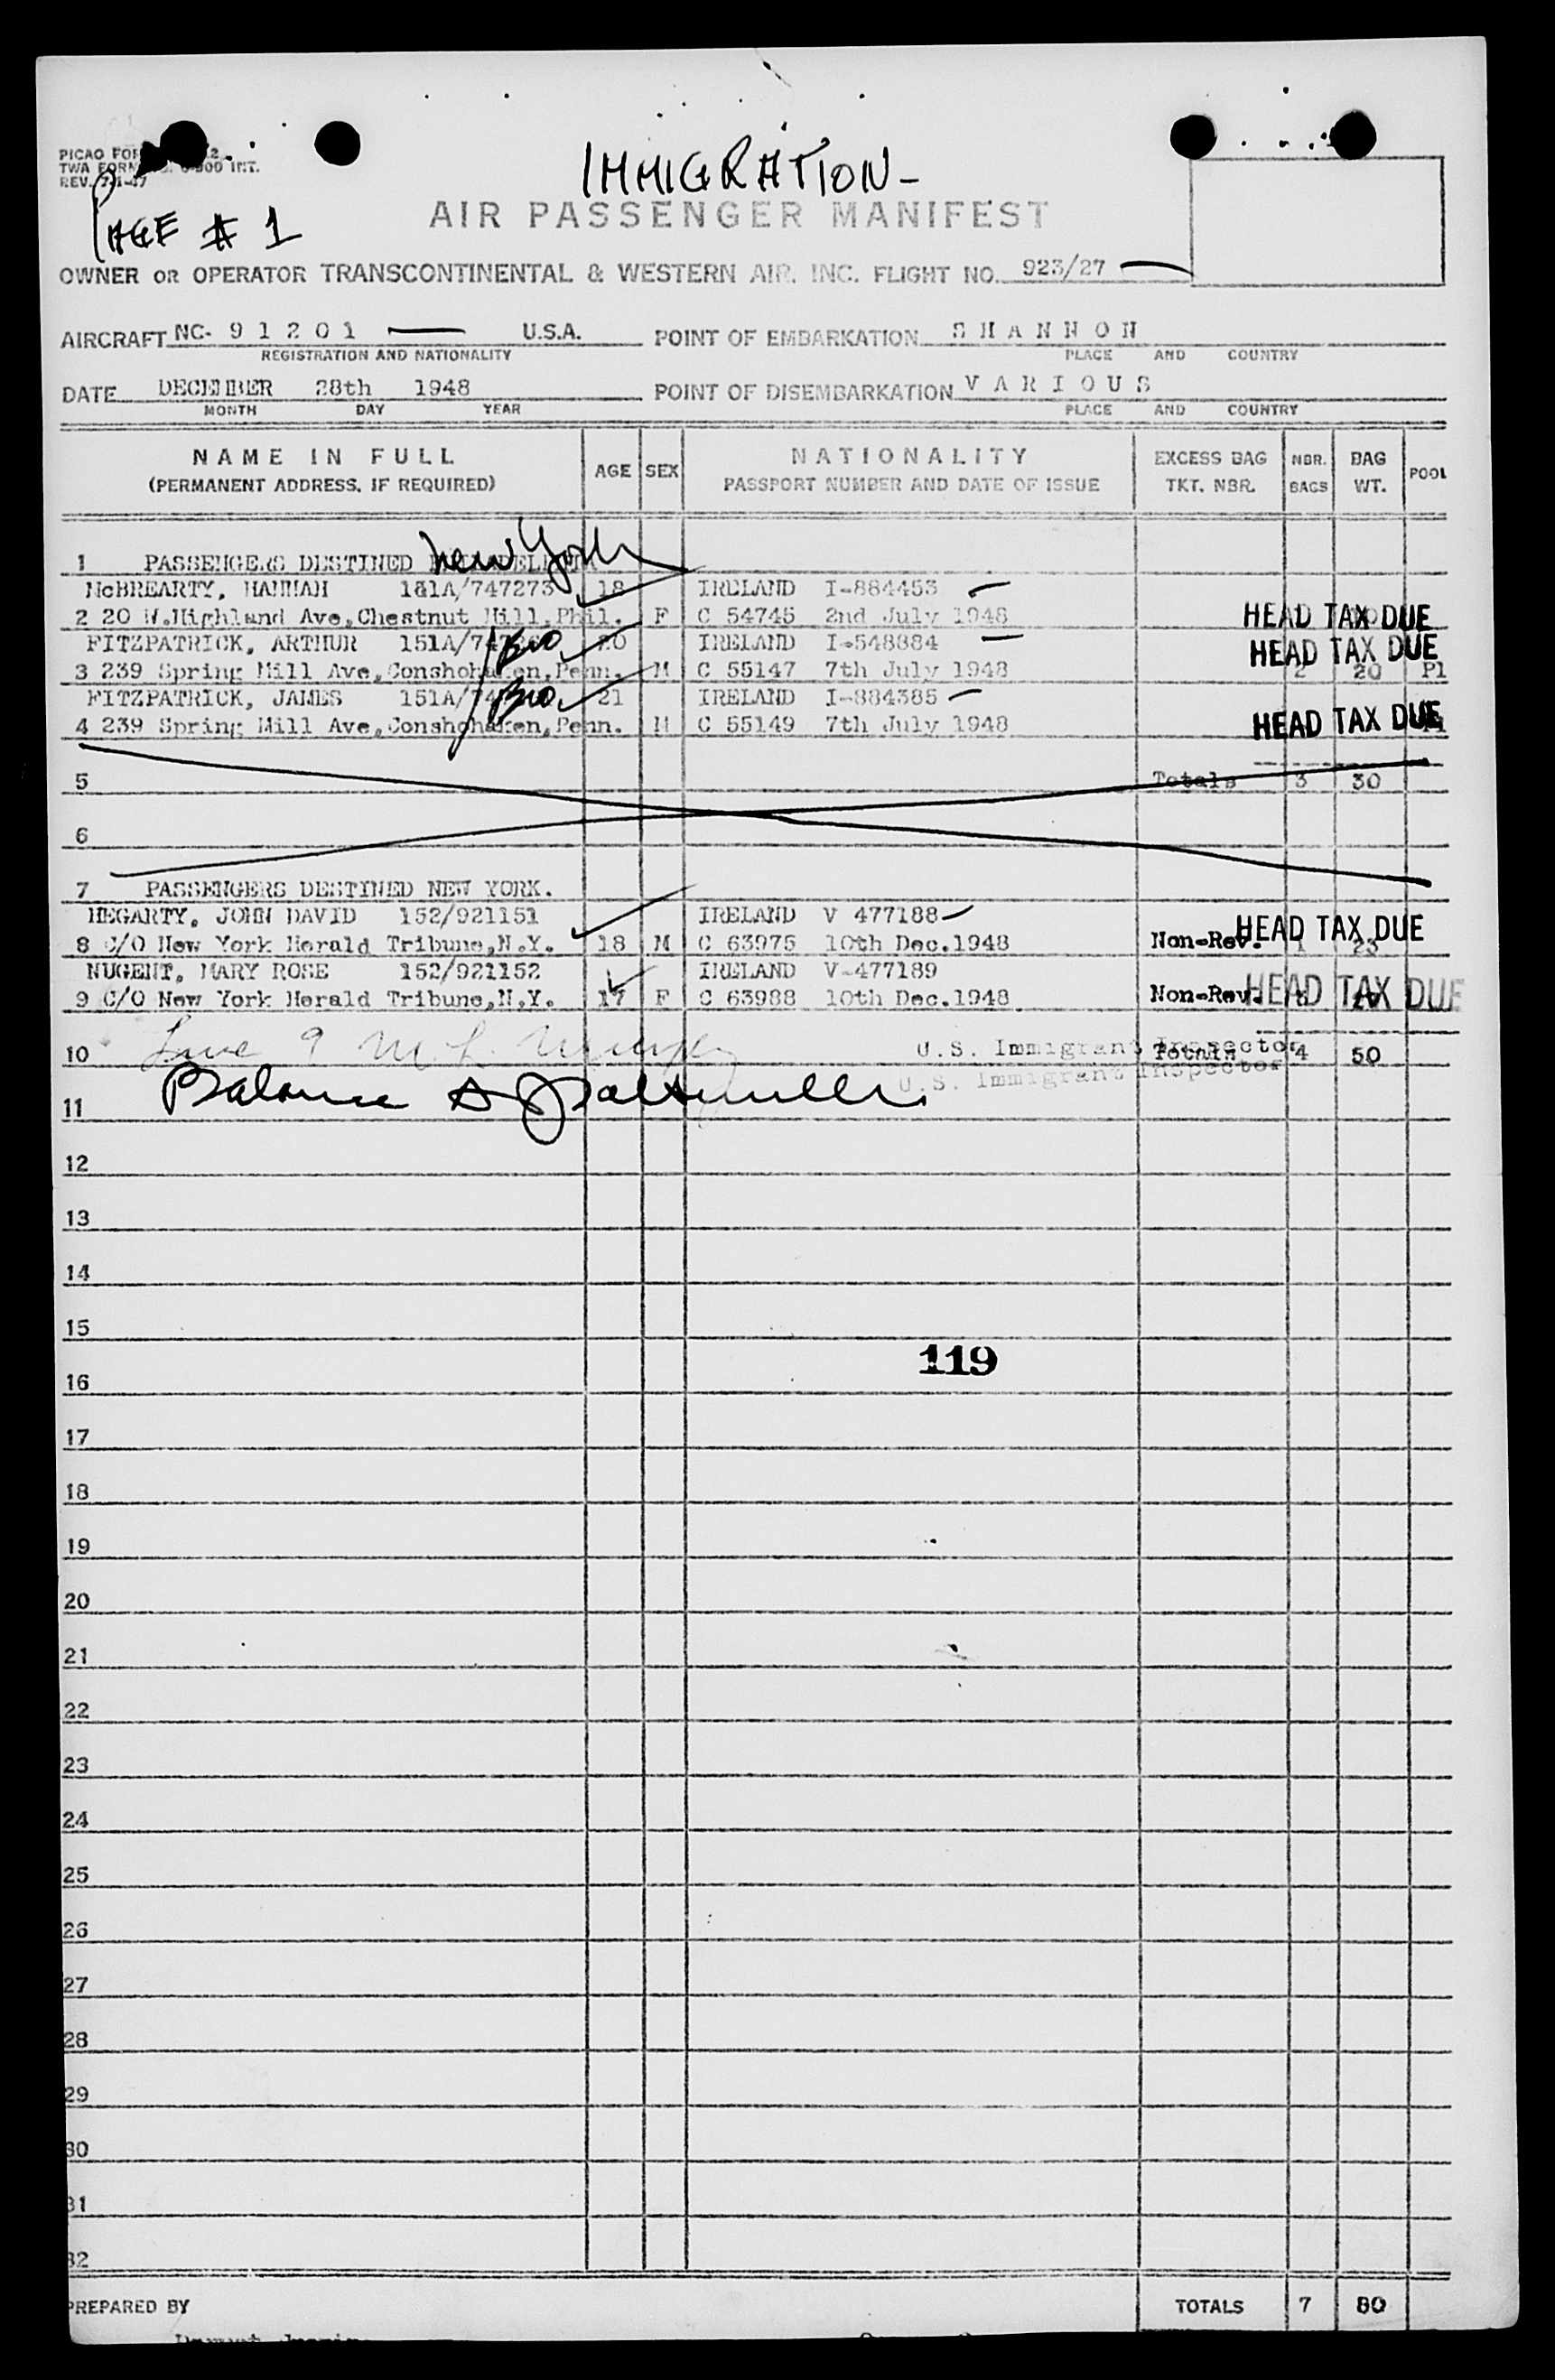 PICAO FOR
TWA FORM 6-300 INT.
REV. 7-1-47
IMMIGRATION-
PAGE # 1
AIR PASSENGER MANIFEST
OWNER OR OPERATOR TRANSCONTINENTAL & WESTERN AIR, INC. FLIGHT NO. 923/27
AIRCRAFT NC- 9 1 2 0 1 U.S.A. POINT OF EMBARKATION S H A N N O N
REGISTRATION AND NATIONALITY PLACE AND COUNTRY
DATE DECEMBER 28th 1948 POINT OF DISEMBARKATION V A R I O U S
MONTH DAY YEAR PLACE AND COUNTRY
NAME IN FULL AGE SEX NATIONALITY EXCESS BAG NBR. BAG POOL
(PERMANENT ADDRESS, IF REQUIRED) PASSPORT NUMBER AND DATE OF ISSUE TKT. NBR. BAGS WT.
1 PASSENGERS DESTINED New York
McBREARTY, HANNAH 181A/747273 18 IRELAND I-884453
2 20 W.Highland Ave,Chestnut Hill,Phil. F C 54745 2nd July 1948 HEAD TAX DUE
FITZPATRICK, ARTHUR 151A/74 20 IRELAND I-548884 HEAD TAX DUE
3 239 Spring Mill Ave,Conshohaken,Penn. M C 55147 7th July 1948 2 20 P1
FITZPATRICK, JAMES 151A/74 21 IRELAND I-884385
4 239 Spring Mill Ave,Conshohaken,Penn. M C 55149 7th July 1948 HEAD TAX DUE
5 Totals 3 30
6
7 PASSENGERS DESTINED NEW YORK.
HEGARTY, JOHN DAVID 152/921151 IRELAND V 477188
8 C/O New York Herald Tribune,N.Y. 18 M C 63975 10th Dec.1948 Non-Rev. HEAD TAX DUE 1 23
NUGENT, MARY ROSE 152/921152 IRELAND V-477189
9 C/O New York Herald Tribune,N.Y. 17 F C 63988 10th Dec.1948 Non-Rev. HEAD TAX DUE
10 Line 9 U.S. Immigrant Inspector Totals 4 50
Balance U.S. Immigrant Inspector
11
12
13
14
15
119
16
17
18
19
20
21
22
23
24
25
26
27
28
29
30
31
32
PREPARED BY TOTALS 7 80